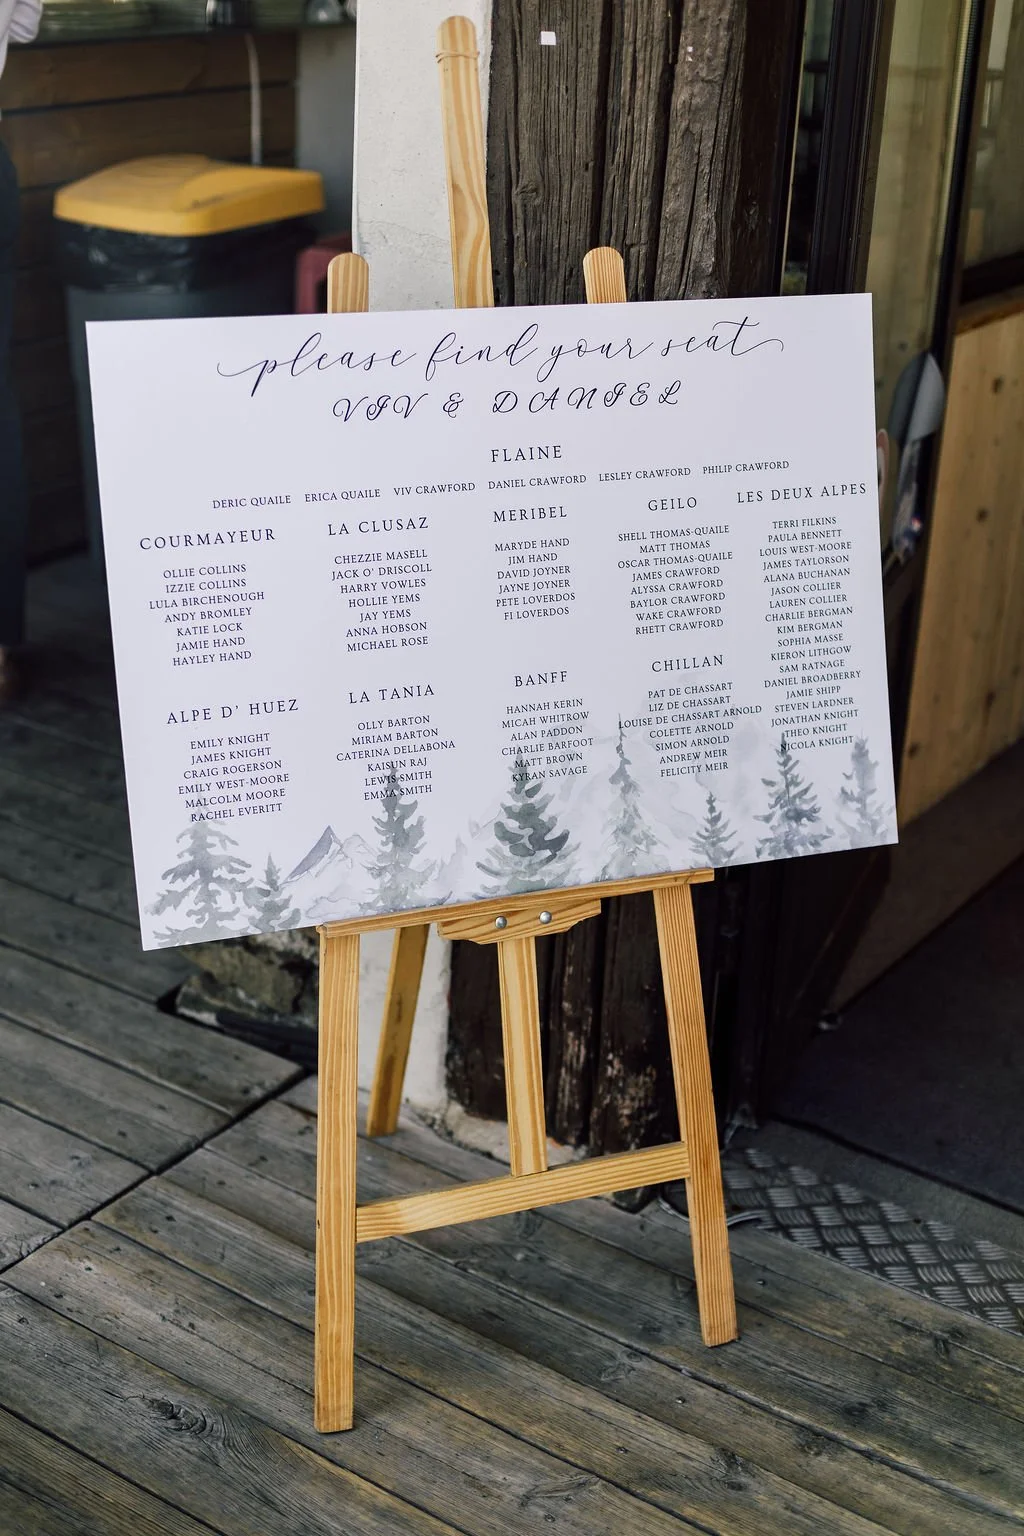 please find your seat
VIV & DANIEL
FLAINE
DERIC QUAILE ERICA QUAILE VIV CRAWFORD DANIEL CRAWFORD LESLEY CRAWFORD PHILIP CRAWFORD
COURMAYEUR
OLLIE COLLINS
IZZIE COLLINS
LULA BIRCHENOUGH
ANDY BROMLEY
KATIE LOCK
JAMIE HAND
HAYLEY HAND
LA CLUSAZ
CHEZZIE MASELL
JACK O' DRISCOLL
HARRY VOWLES
HOLLIE YEMS
JAY YEMS
ANNA HOBSON
MICHAEL ROSE
MERIBEL
MARYDE HAND
JIM HAND
DAVID JOYNER
JAYNE JOYNER
PETE LOVERDOS
FI LOVERDOS
GEILO
SHELL THOMAS-QUAILE
MATT THOMAS
OSCAR THOMAS-QUAILE
JAMES CRAWFORD
ALYSSA CRAWFORD
BAYLOR CRAWFORD
WAKE CRAWFORD
RHETT CRAWFORD
LES DEUX ALPES
TERRI FILKINS
PAULA BENNETT
LOUIS WEST-MOORE
JAMES TAYLORSON
ALANA BUCHANAN
JASON COLLIER
LAUREN COLLIER
CHARLIE BERGMAN
KIM BERGMAN
SOPHIA MASSE
KIERON LITHGOW
SAM RATNAGE
DANIEL BROADBERRY
JAMIE SHIPP
STEVEN LARDNER
JONATHAN KNIGHT
THEO KNIGHT
NICOLA KNIGHT
ALPE D' HUEZ
EMILY KNIGHT
JAMES KNIGHT
CRAIG ROGERSON
EMILY WEST-MOORE
MALCOLM MOORE
RACHEL EVERITT
LA TANIA
OLLY BARTON
MIRIAM BARTON
CATERINA DELLABONA
KAISUN RAJ
LEWIS SMITH
EMMA SMITH
BANFF
HANNAH KERIN
MICAH WHITROW
ALAN PADDON
CHARLIE BARFOOT
MATT BROWN
KYRAN SAVAGE
CHILLAN
PAT DE CHASSART
LIZ DE CHASSART
LOUISE DE CHASSART ARNOLD
COLETTE ARNOLD
SIMON ARNOLD
ANDREW MEIR
FELICITY MEIR